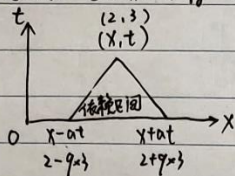 t
(2,3)
(x,t)
依赖区间
0 x-at x+at x
2-9×3 2+9×3